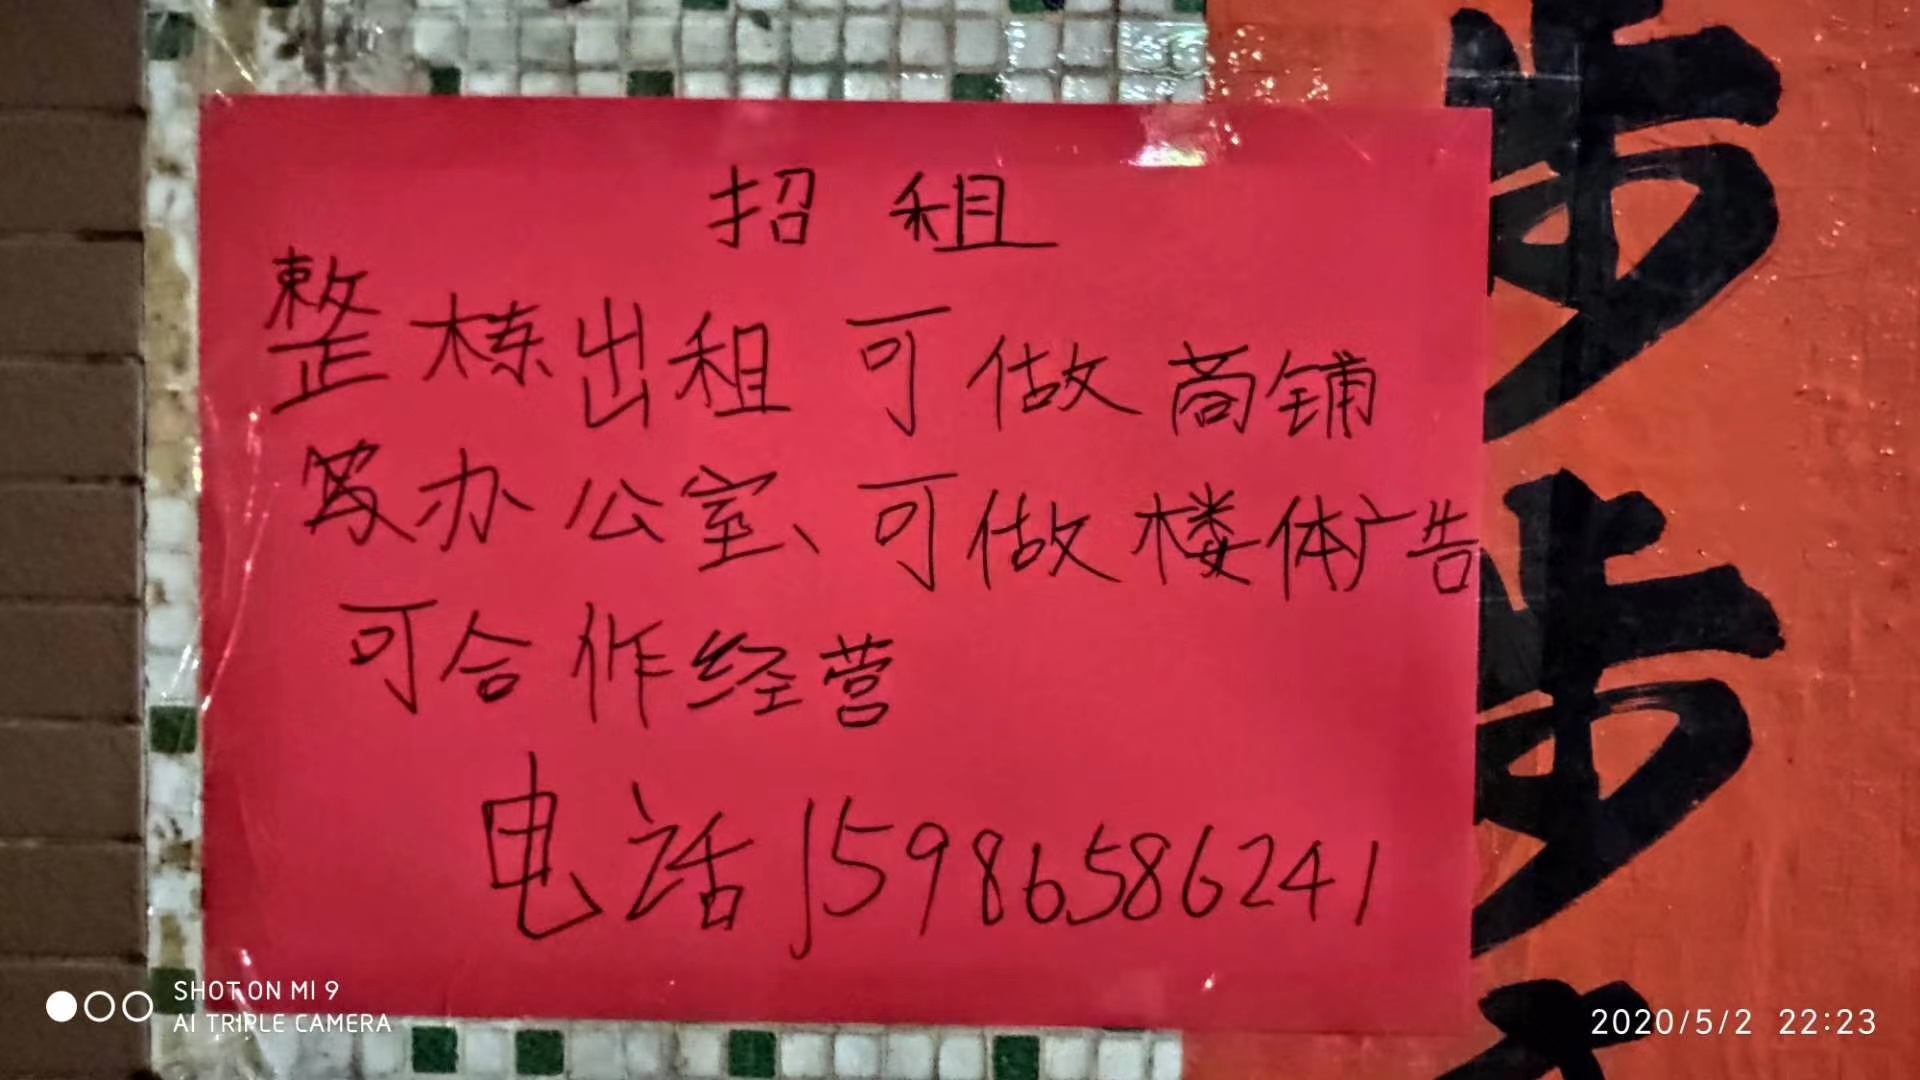 招租
整栋出租可做商铺
办公室、可做楼体广告
可合作经营
电话15986586241
步步
SHOT ON MI 9
AI TRIPLE CAMERA
2020/5/2 22:23